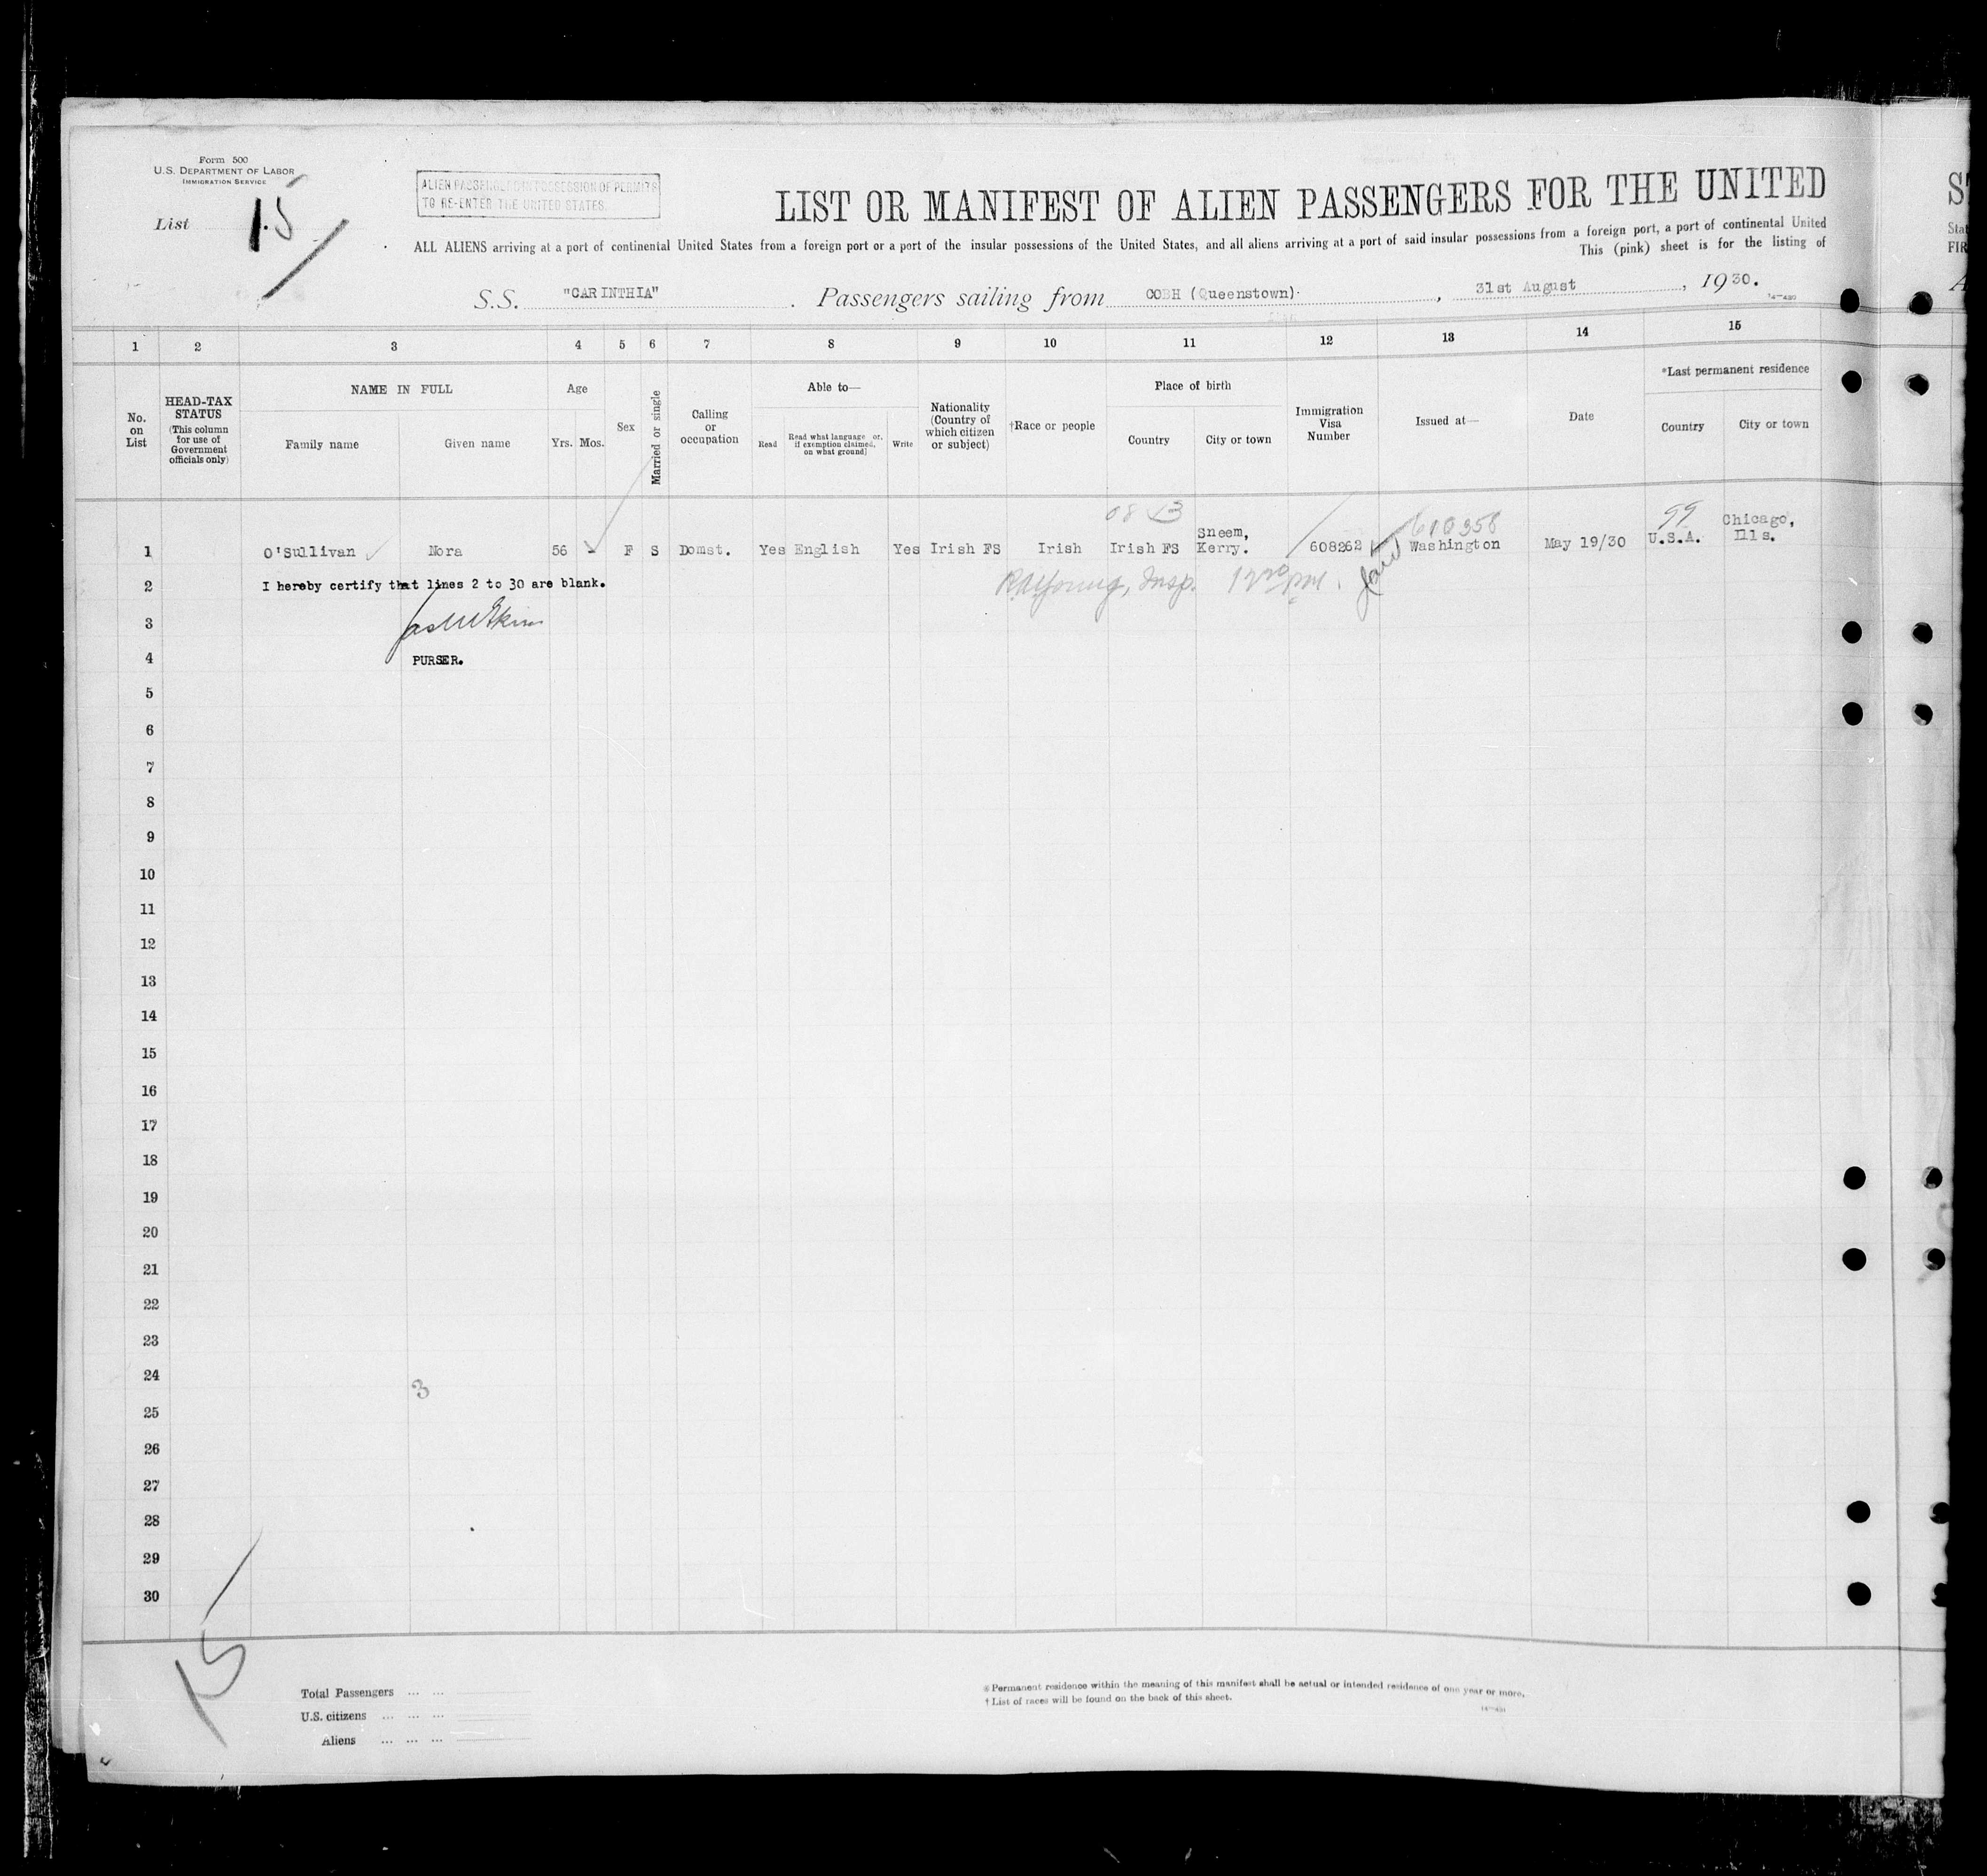 Form 500
U.S. DEPARTMENT OF LABOR
IMMIGRATION SERVICE
List 15
ALIEN PASSENGERS IN POSSESSION OF PERMITS
TO RE-ENTER THE UNITED STATES.
LIST OR MANIFEST OF ALIEN PASSENGERS FOR THE UNITED
ALL ALIENS arriving at a port of continental United States from a foreign port or a port of the insular possessions of the United States, and all aliens arriving at a port of said insular possessions from a foreign port, a port of continental United
This (pink) sheet is for the listing of
S.S. "CARINTHIA" . Passengers sailing from COBH (Queenstown) , 31st August , 1930.
1 2 3 4 5 6 7 8 9 10 11 12 13 14 15
No. on List
HEAD-TAX STATUS
(This column for use of Government officials only)
NAME IN FULL
Family name Given name
Age
Yrs. Mos.
Sex
Married or single
Calling or occupation
Able to—
Read
Read what language or, if exemption claimed, on what ground
Write
Nationality (Country of which citizen or subject)
†Race or people
Place of birth
Country City or town
Immigration Visa Number
Issued at—
Date
*Last permanent residence
Country City or town
610358
99
1 O'Sullivan Nora 56 - F S Domst. Yes English Yes Irish FS Irish Irish FS Sneem, Kerry. 608262 Washington May 19/30 U.S.A. Chicago, Ills.
2 I hereby certify that lines 2 to 30 are blank.
3
4 PURSER.
5
6
7
8
9
10
11
12
13
14
15
16
17
18
19
20
21
22
23
24
3
25
26
27
28
29
30
15
Total Passengers ... ...
U.S. citizens ... ... ...
Aliens ... ... ...
* Permanent residence within the meaning of this manifest shall be actual or intended residence of one year or more.
† List of races will be found on the back of this sheet.